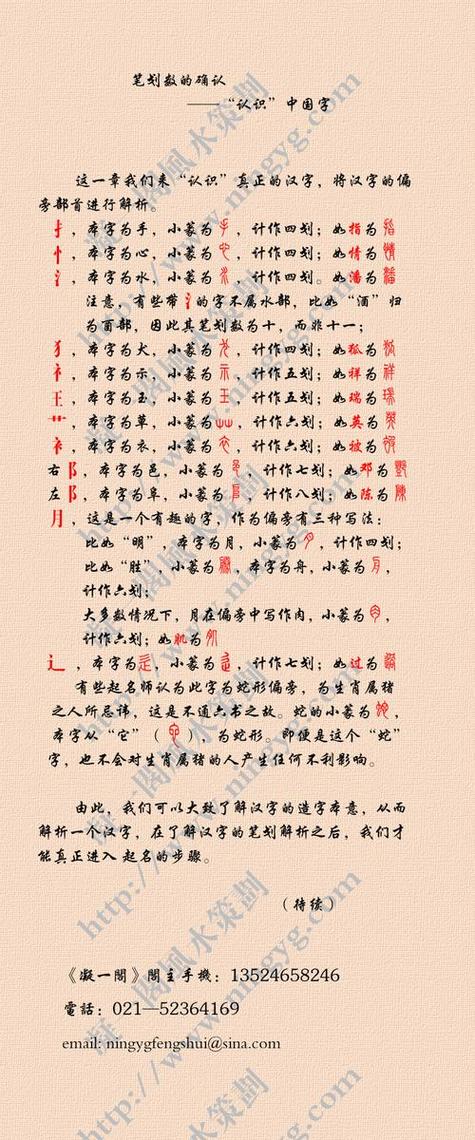 笔划数的确认
——“认识”中国字
这一章我们来“认识”真正的汉字，将汉字的偏
旁部首进行解析。
扌，本字为手，小篆为手，计作四划；如指为指
忄，本字为心，小篆为心，计作四划；如情为情
氵，本字为水，小篆为水，计作四划。如潘为潘
注意，有些带氵的字不属水部，比如“酒”归
为酉部，因此其笔划数为十，而非十一；
犭，本字为犬，小篆为犬，计作四划；如狐为狐
礻，本字为示，小篆为示，计作五划；如祥为祥
王，本字为玉，小篆为王，计作五划；如瑞为瑞
艹，本字为草，小篆为艸，计作六划；如英为英
衤，本字为衣，小篆为衣，计作六划；如被为被
右阝，本字为邑，小篆为邑，计作七划；如邓为鄧
左阝，本字为阜，小篆为阜，计作八划；如陈为陳
月，这是一个有趣的字，作为偏旁有三种写法：
比如“明”，本字为月，小篆为月，计作四划；
比如“胜”，小篆为勝，本字为舟，小篆为舟，
计作六划；
大多数情况下，月在偏旁中写作肉，小篆为肉，
计作六划；如肌为肌
辶，本字为辵，小篆为辵，计作七划；如过为過
有些起名师认为此字为蛇形偏旁，为生肖属猪
之人所忌讳，这是不通六书之故。蛇的小篆为蛇，
本字从“它”（它），为蛇形。即便是这个“蛇”
字，也不会对生肖属猪的人产生任何不利影响。
由此，我们可以大致了解汉字的造字本意，从而
解析一个汉字，在了解汉字的笔划解析之后，我们才
能真正进入起名的步骤。
（待续）
《凝一閣》閣主手機：13524658246
電話：021—52364169
email: ningygfengshui@sina.com
凝一閣風水策劃
http://www.ningyg.com